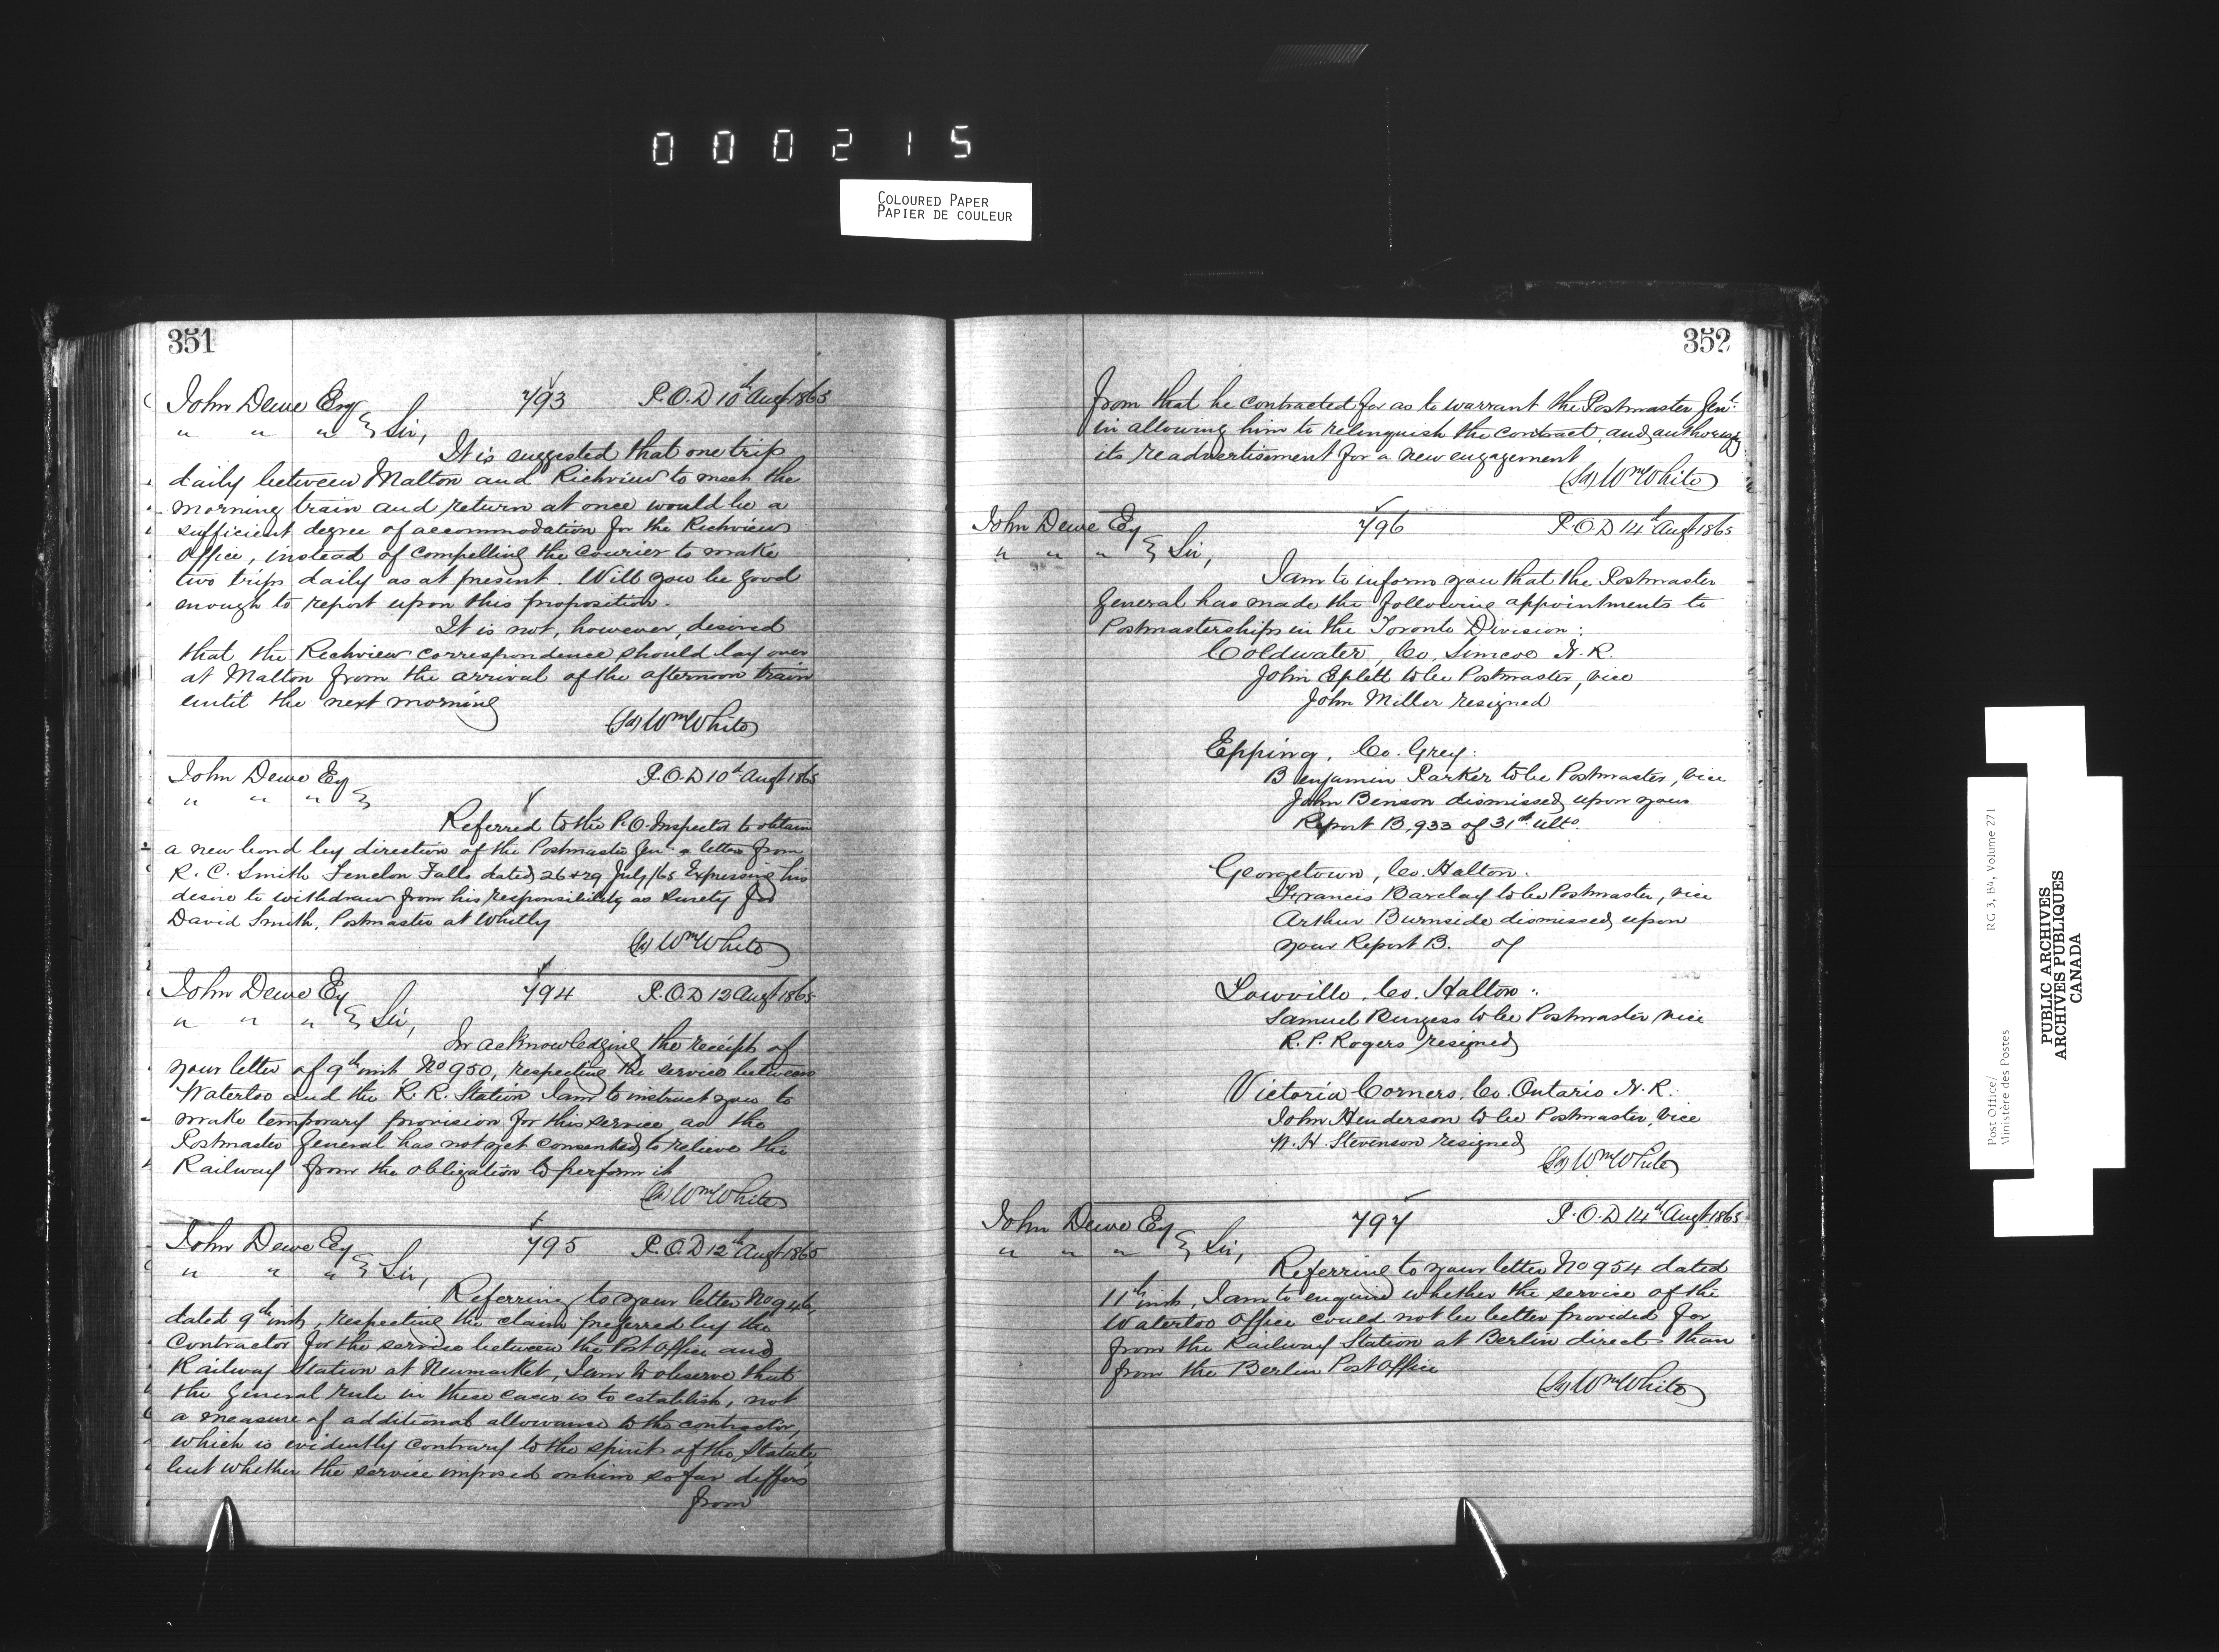 0 0 0 2 1 5
COLOURED PAPER
PAPIER DE COULEUR
351
John Dewe Esq 793 P.O.D 10th Augt 1865
" " " } Sir,
It is suggested that one trip
daily between Malton and Richview to meet the
morning train and return at once would be a
sufficient degree of accommodation for the Richview
Office, instead of compelling the courier to make
two trips daily as at present. Will you be good
enough to report upon this proposition.
It is not, however, desired
that the Richview correspondence should lay over
at Malton from the arrival of the afternoon train
until the next morning
(Sd) Wm White
John Dewe Esq P.O.D 10th Augt 1865
" " " }
Referred to the P.O. Inspector to obtain
a new bond by direction of the Postmaster Genl a letter from
R. C. Smith Fenelon Falls dated 26 & 29 July/65 Expressing his
desire to withdraw from his responsibility as Surety for
David Smith, Postmaster at Whitby
(Sd) Wm White
John Dewe Esq 794 P.O.D 12 Augt 1865
" " " } Sir,
In acknowledging the receipt of
your letter of 9th inst No 950, respecting the service between
Waterloo and the R. R. Station I am to instruct you to
make temporary provision for this service as the
Postmaster General has not yet consented to relieve the
Railway from the obligation to perform it
(Sd) Wm White
John Dewe Esq 795 P.O.D 12th Augt 1865
" " " } Sir,
Referring to your letter No 946,
dated 9th inst, respecting the claim preferred by the
Contractor for the service between the Post Office and
Railway Station at Newmarket, I am to observe that
the General rule in these cases is to establish, not
a measure of additional allowance to the contractor,
which is evidently contrary to the spirit of the Statute,
but whether the service imposed on him so far differs
from
352
from that he contracted for as to warrant the Postmaster Genl:
in allowing him to relinquish the contract, and authorizg
its readvertisement for a new engagement
(Sd) Wm White
John Dewe Esq 796 P.O.D 14th Augt 1865
" " " } Sir,
I am to inform you that the Postmaster
General has made the following appointments to
Postmasterships in the Toronto Division:
Coldwater, Co. Simcoe N. R.
John Eplett to be Postmaster, vice
John Miller resigned
Epping, Co. Grey:
Benjamin Parker to be Postmaster, vice
John Benson dismissed upon your
Report B.933 of 31st ulto.
Georgetown, Co. Halton:
Francis Barclay to be Postmaster, vice
Arthur Burnside dismissed upon
your Report B. of
Lowville, Co. Halton:
Samuel Burgess to be Postmaster vice
R. P. Rogers resigned
Victoria Corners, Co. Ontario N. R.:
John Henderson to be Postmaster, vice
W. H. Stevenson resigned
(Sd) Wm White
John Dewe Esq 797 P.O.D 14th Augt 1865
" " " } Sir,
Referring to your letter No 954 dated
11th inst, I am to enquire whether the service of the
Waterloo Office could not be better provided for
from the Railway Station at Berlin direct than
from the Berlin Post Office
(Sd) Wm White
Post Office/ RG 3, B4, Volume 271
Ministère des Postes
PUBLIC ARCHIVES
ARCHIVES PUBLIQUES
CANADA